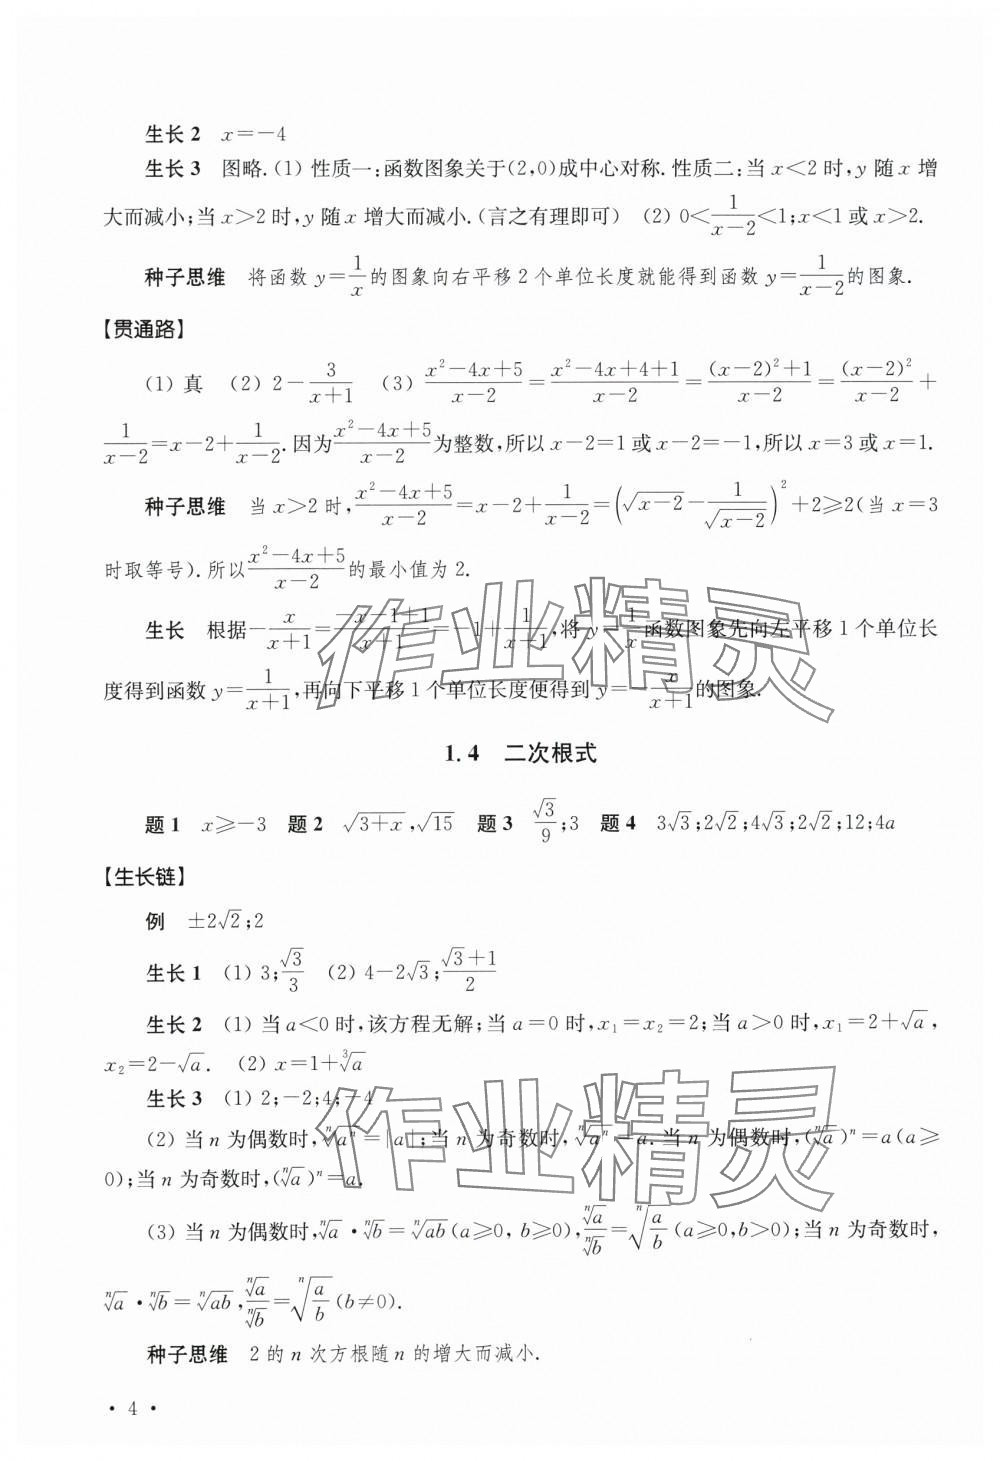 生长 2　x=−4
生长 3　图略.(1) 性质一:函数图象关于(2,0)成中心对称.性质二:当 x<2 时,y 随 x 增
大而减小;当 x>2 时,y 随 x 增大而减小.(言之有理即可)　(2) 0<1/(x−2)<1;x<1 或 x>2.
种子思维　将函数 y=1/x 的图象向右平移 2 个单位长度就能得到函数 y=1/(x−2) 的图象.
【贯通路】
(1) 真　(2) 2−3/(x+1)　(3) (x²−4x+5)/(x−2)=(x²−4x+4+1)/(x−2)=((x−2)²+1)/(x−2)=(x−2)²/(x−2)+
1/(x−2)=x−2+1/(x−2).因为(x²−4x+5)/(x−2)为整数,所以 x−2=1 或 x−2=−1,所以 x=3 或 x=1.
种子思维　当 x>2 时,(x²−4x+5)/(x−2)=x−2+1/(x−2)=(√(x−2)−1/√(x−2))²+2⩾2(当 x=3
时取等号).所以(x²−4x+5)/(x−2)的最小值为 2.
生长　根据−x/(x+1)=(−x−1+1)/(x+1)=−1+1/(x+1),将 y=1/x 函数图象先向左平移 1 个单位长
度得到函数 y=1/(x+1),再向下平移 1 个单位长度便得到 y=−x/(x+1)的图象.
1.4　二次根式
题 1　x⩾−3　题 2　√(3+x),√15　题 3　√3/9;3　题 4　3√3;2√2;4√3;2√2;12;4a
【生长链】
例　±2√2;2
生长 1　(1) 3;√3/3　(2) 4−2√3;(√3+1)/2
生长 2　(1) 当 a<0 时,该方程无解;当 a=0 时,x₁=x₂=2;当 a>0 时,x₁=2+√a,
x₂=2−√a.　(2) x=1+∛a
生长 3　(1) 2;−2;4;−4
(2) 当 n 为偶数时,ⁿ√(aⁿ)=|a|;当 n 为奇数时,ⁿ√(aⁿ)=a.当 n 为偶数时,(ⁿ√a)ⁿ=a(a⩾
0);当 n 为奇数时,(ⁿ√a)ⁿ=a.
(3) 当 n 为偶数时,ⁿ√a·ⁿ√b=ⁿ√(ab)(a⩾0, b⩾0),ⁿ√a/ⁿ√b=ⁿ√(a/b)(a⩾0,b>0);当 n 为奇数时,
ⁿ√a·ⁿ√b=ⁿ√(ab),ⁿ√a/ⁿ√b=ⁿ√(a/b)(b≠0).
种子思维　2 的 n 次方根随 n 的增大而减小.
· 4 ·
作业精灵
作业精灵